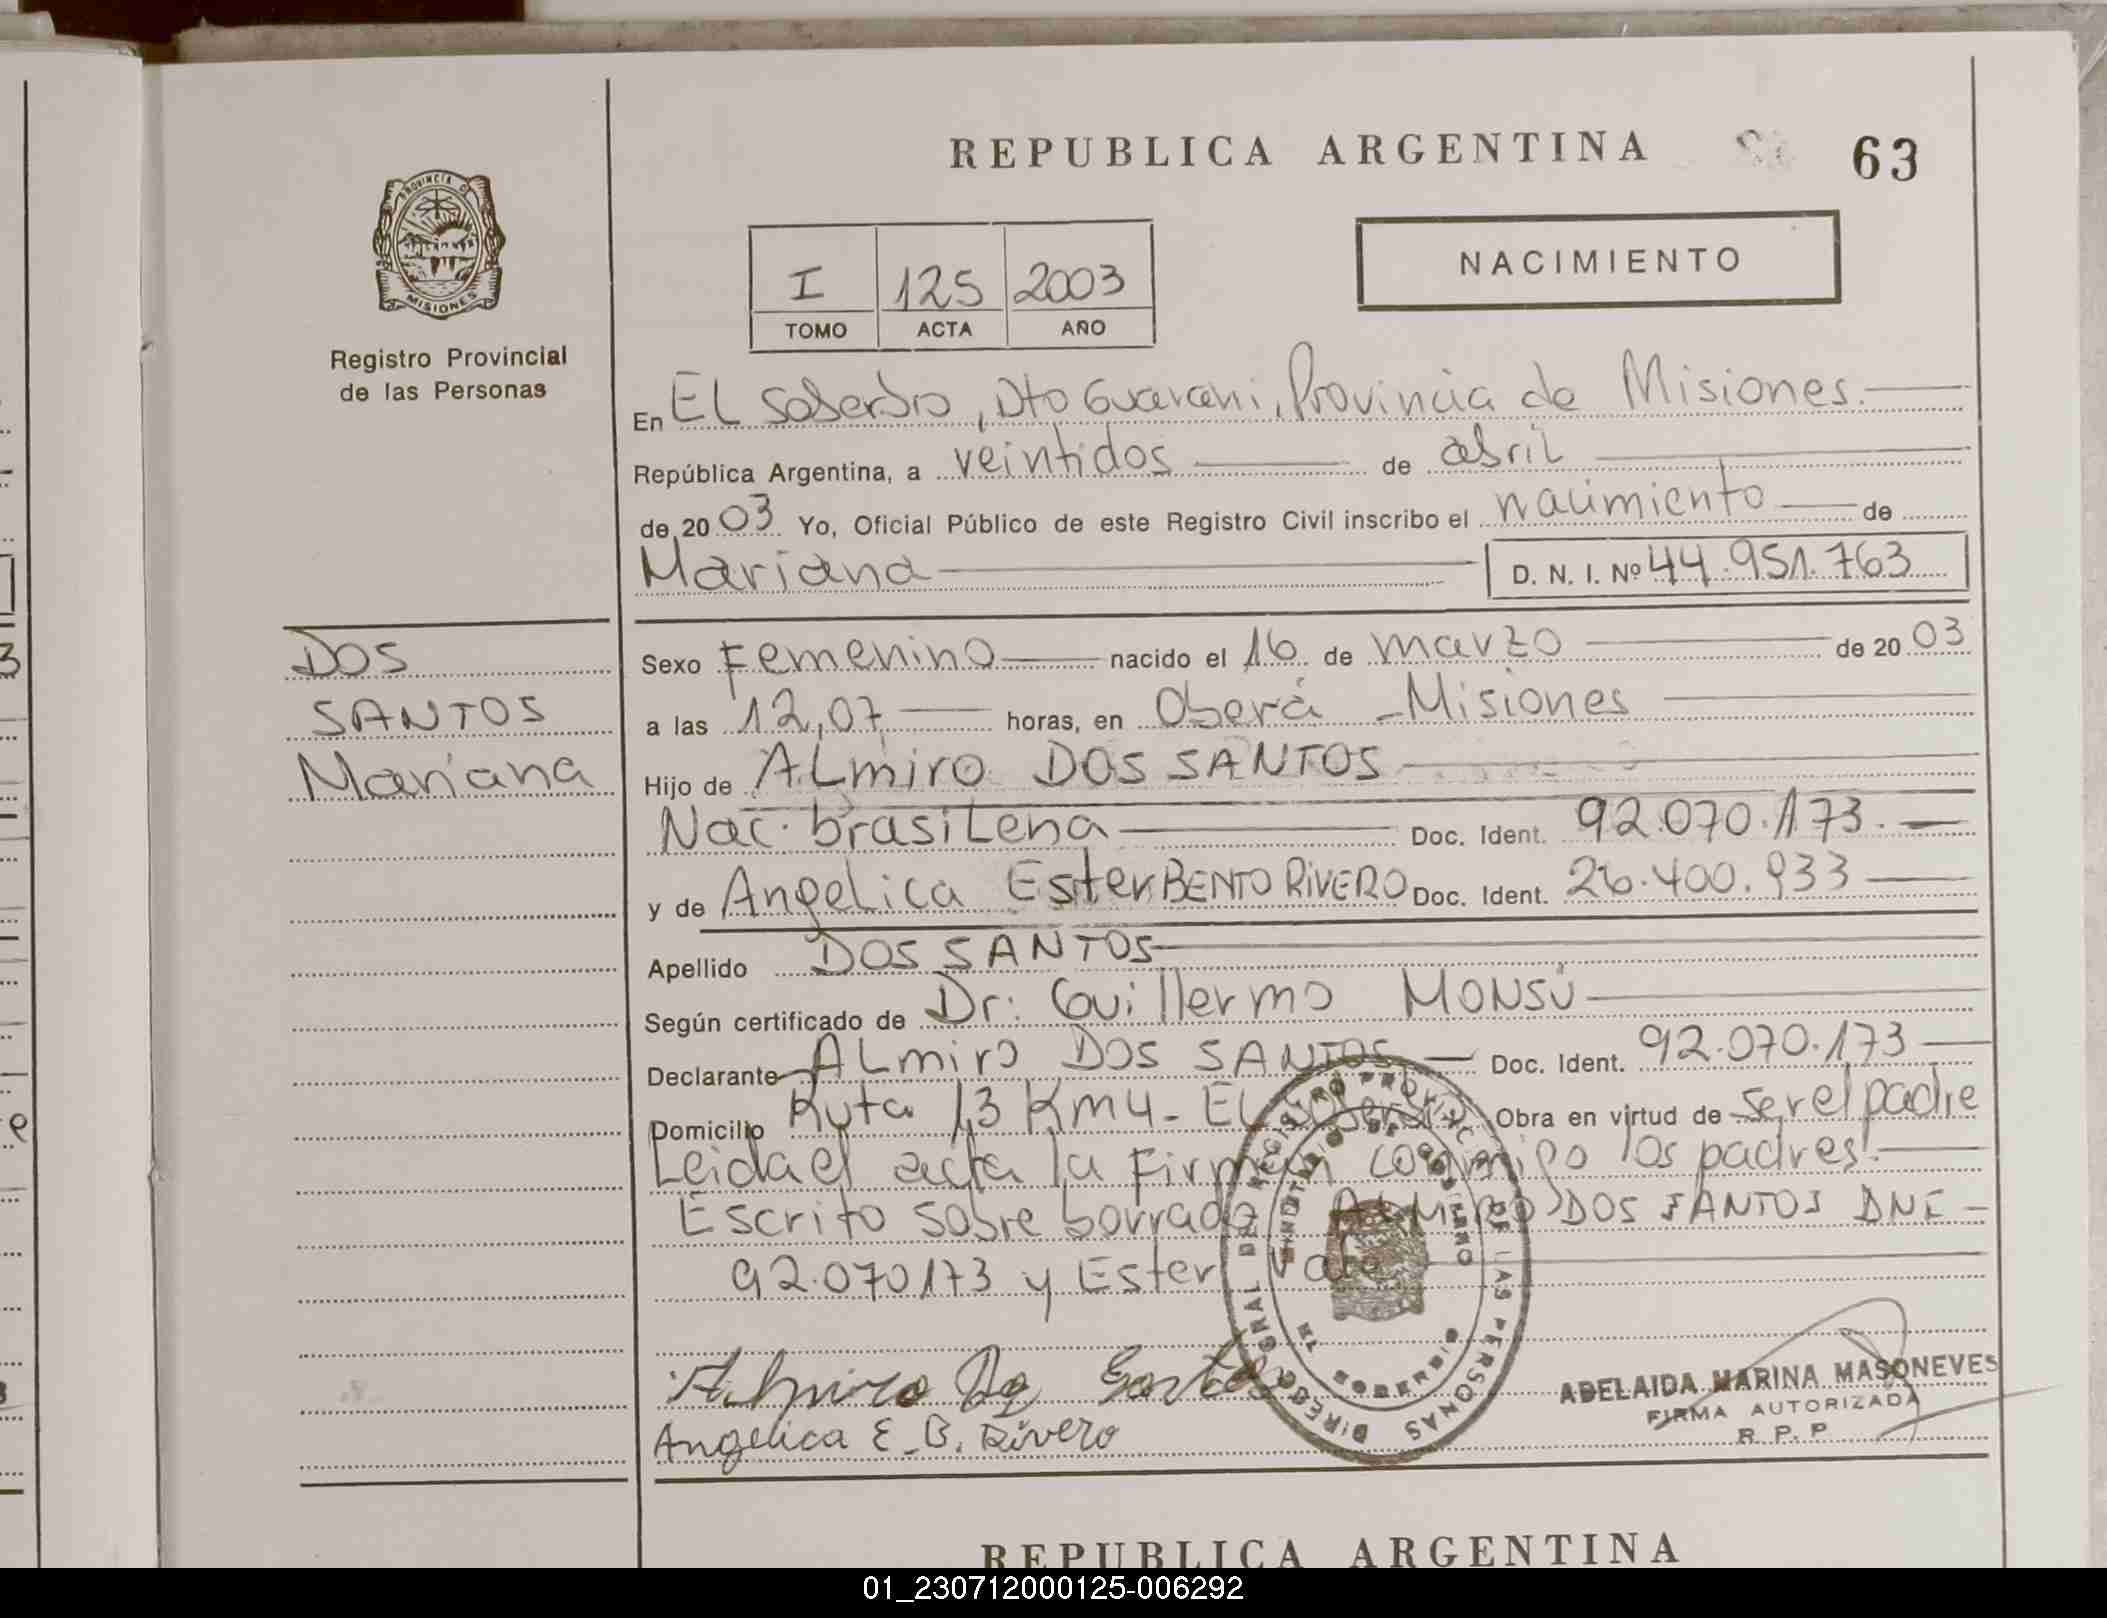 REPUBLICA ARGENTINA 63
PROVINCIA D
MISIONES
Registro Provincial
de las Personas
I 125 2003
TOMO ACTA AÑO
NACIMIENTO
En EL Soberbio, Dto Guarani, Provincia de Misiones.
República Argentina, a veintidos de abril
de 20 03 Yo, Oficial Público de este Registro Civil inscribo el nacimiento de
Mariana D. N. I. Nº 44.951.763
DOS
SANTOS
Mariana
Sexo Femenino nacido el 16 de marzo de 20 03
a las 12,07 horas, en Oberá - Misiones
Hijo de ALmiro DOS SANTOS
Nac. brasiLena Doc. Ident. 92.070.173.
y de AngeLica Ester BENTO RiVERO Doc. Ident. 26.400.933
Apellido DOS SANTOS
Según certificado de Dr. Guillermo MONSÚ
Declarante ALmiro DOS SANTOS Doc. Ident. 92.070.173
Domicilio Ruta 13 Km 4 - EL Soberbio Obra en virtud de ser el padre
Leida el acta la Firman conmigo los padres.
Escrito sobre borrado ALMIRO DOS SANTOS DNE -
92.070173 y Ester Vale
Almiro Dos Santos
Angelica E. B. Rivero
DIRECCION GENERAL DEL REGISTRO PROVINCIAL DE LAS PERSONAS
MINISTERIO DE GOBIERNO
ADELAIDA MARINA MASONEVES
FIRMA AUTORIZADA
R. P. P
REPUBLICA ARGENTINA
01_230712000125-006292